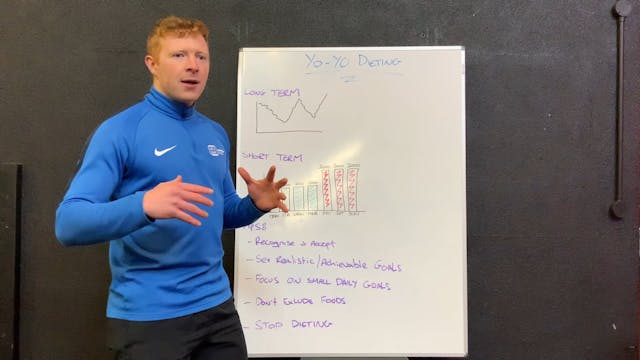 YO-YO DIETING
LONG TERM
SHORT TERM
- RECOGNISE → ACCEPT
- SET REALISTIC/ACHIEVABLE GOALS
- FOCUS ON SMALL DAILY GOALS
- DON'T EXLUDE FOODS
- STOP DIETING